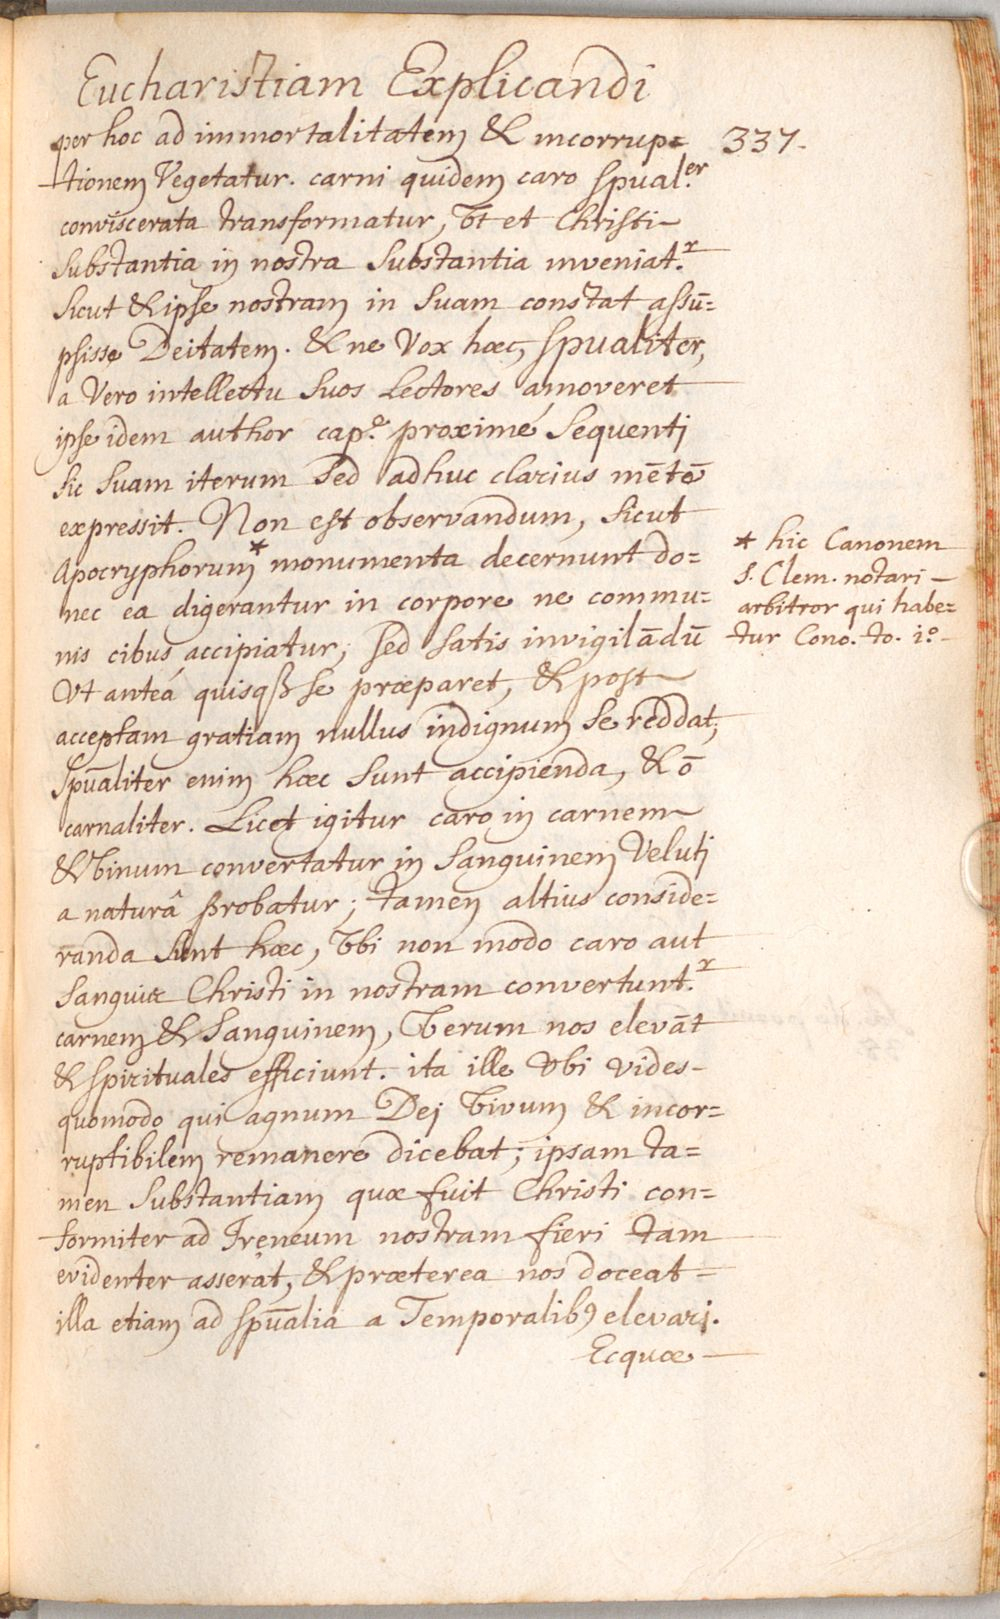 Eucharistiam Explicandi
per hoc ad immortalitatem & incorrup=
337.
tionem Vegetatur. carni quidem caro spual.er
conviscerata transformatur, Vt et Christi
substantia in nostra substantia inveniat.r
sicut & ipse nostram in suam constat assū=
psisse Deitatem. & ne Vox hæc, spualiter,
a Vero intellectu suos Lectores amoveret
ipse idem author cap.e proximé sequenti
sic suam iterum sed adhuc clarius mētē
expressit. Non est observandum, sicut
Apocryphorum * monumenta decernunt do=
nec ea digerantur in corpore ne commu=
nis cibus accipiatur; sed satis invigilādū
Vt anteá quisqß se præparet, & post
acceptam gratiam nullus indignum se reddat;
spūaliter enim hæc sunt accipienda, & ō
carnaliter. Licet igitur caro in carnem
& Vinum convertatur in sanguinem Veluti
a naturâ probatur; tamen altius conside=
randa sunt hæc, Vbi non modo caro aut
sanguis Christi in nostram convertunt.r
carnem & sanguinem, Verum nos elevāt
& spirituales efficiunt. ita ille Vbi vides
quomodo qui agnum Dei Vivum & incor=
ruptibilem remanere dicebat; ipsam ta=
men substantiam quæ fuit Christi con=
formiter ad Ireneum nostram fieri tam
evidenter asserat, & præterea nos doceat
illa etiam ad spūalia a Temporalibꝰ elevari.
Ecquæ
* hic Canonem
S. Clem. notari
arbitror qui habe=
tur Conc. to. i.o